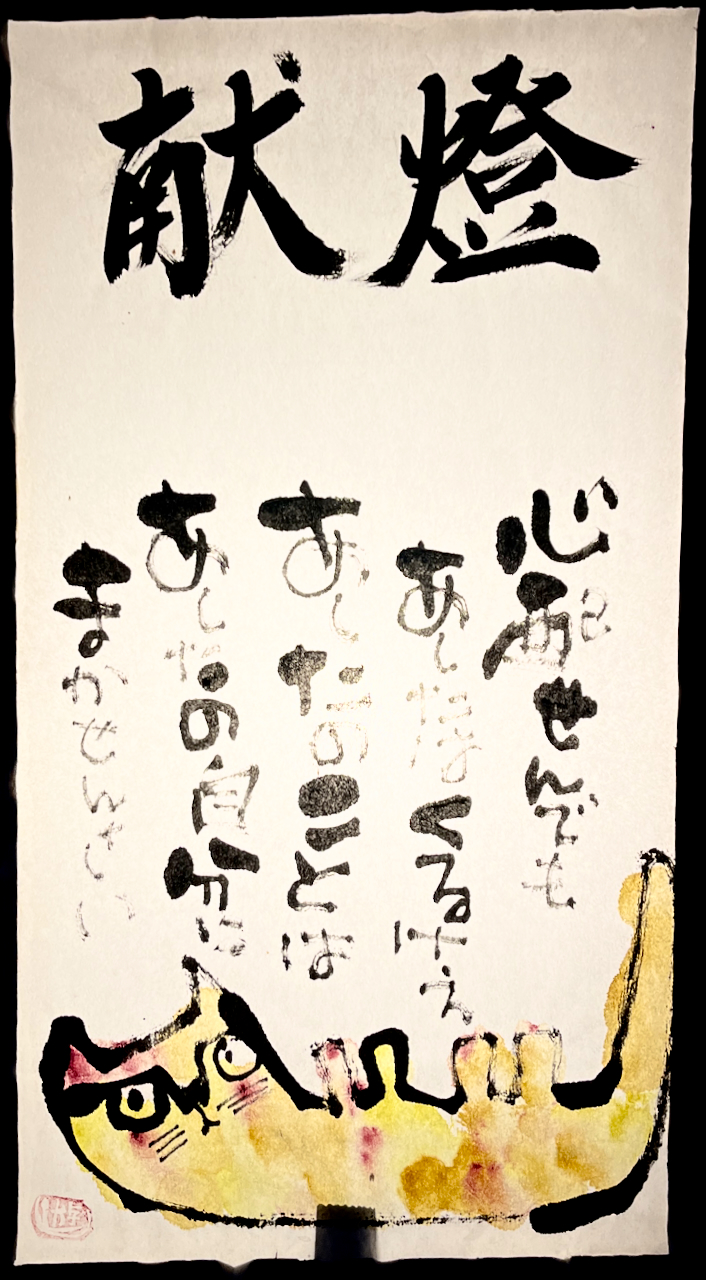 献燈
心配せんでも
あしたはくるけえ
あしたのことは
あしたの自分に
まかせんさい